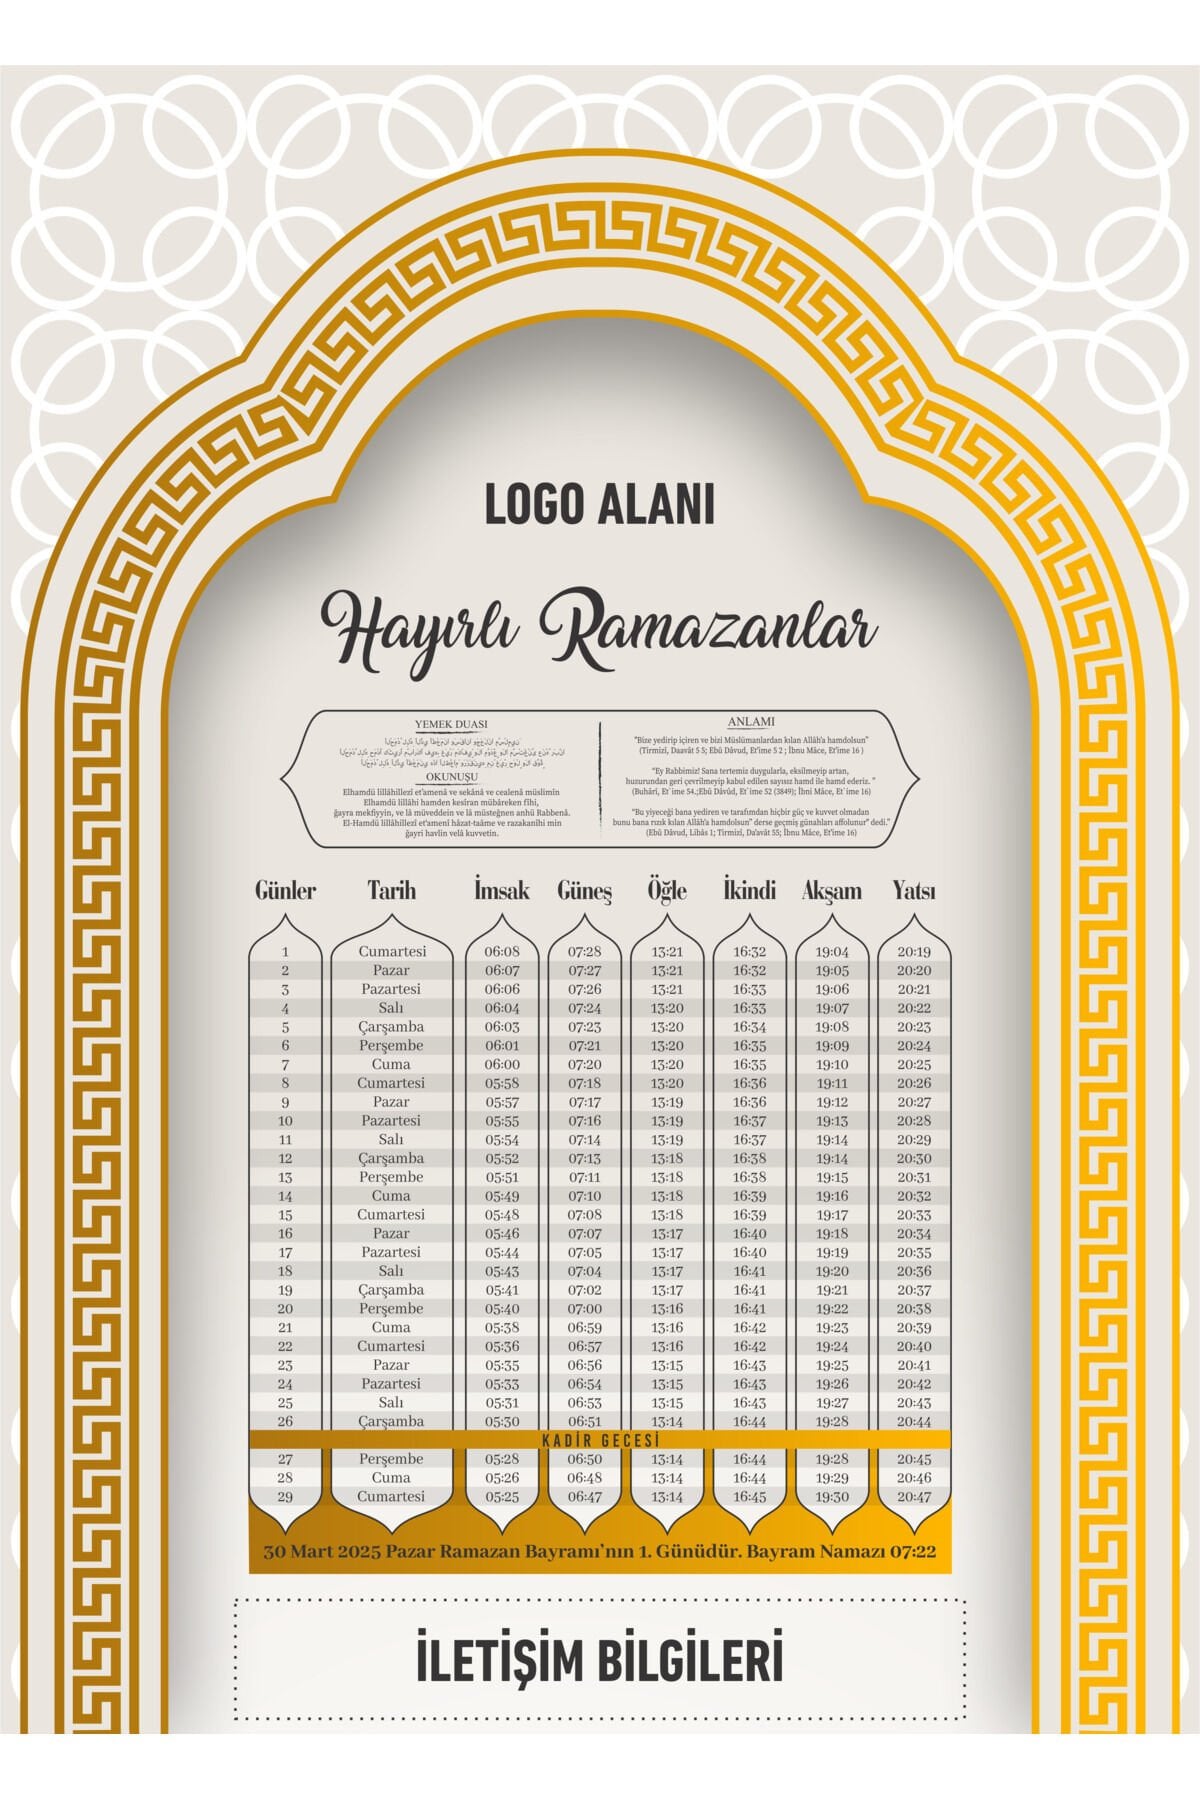 LOGO ALANI
Hayırlı Ramazanlar
YEMEK DUASI
OKUNUŞU
Elhamdü lillâhillezî et'amenâ ve sekânâ ve cealenâ müslimîn
Elhamdü lillâhi hamden kesîran mübâreken fîhi,
ğayra mekfiyyin, ve lâ müveddein ve lâ müsteğnen anhü Rabbenâ.
El-Hamdü lillâhillezî et'amenî hâzat-taâme ve razakanîhi min
ğayri havlin velâ kuvvetin.
ANLAMI
"Bize yedirip içiren ve bizi Müslümanlardan kılan Allâh'a hamdolsun"
(Tirmizî, Daavât 5 5; Ebû Dâvud, Et'ime 5 2 ; İbnu Mâce, Et'ime 16 )
"Ey Rabbimiz! Sana tertemiz duygularla, eksilmeyip artan,
huzurundan geri çevrilmeyip kabul edilen sayısız hamd ile hamd ederiz. "
(Buhâri, Et'ime 54.;Ebû Dâvûd, Et'ime 52 (3849); İbni Mâce, Et'ime 16)
"Bu yiyeceği bana yediren ve tarafımdan hiçbir güç ve kuvvet olmadan
bunu bana rızık kılan Allâh'a hamdolsun" derse geçmiş günahları affolunur" dedi."
(Ebû Dâvud, Libâs 1; Tirmizî, Da'avât 55; İbnu Mâce, Et'ime 16)
Günler Tarih İmsak Güneş Öğle İkindi Akşam Yatsı
1 Cumartesi 06:08 07:28 13:21 16:32 19:04 20:19
2 Pazar 06:07 07:27 13:21 16:32 19:05 20:20
3 Pazartesi 06:06 07:26 13:21 16:33 19:06 20:21
4 Salı 06:04 07:24 13:20 16:33 19:07 20:22
5 Çarşamba 06:03 07:23 13:20 16:34 19:08 20:23
6 Perşembe 06:01 07:21 13:20 16:35 19:09 20:24
7 Cuma 06:00 07:20 13:20 16:35 19:10 20:25
8 Cumartesi 05:58 07:18 13:20 16:36 19:11 20:26
9 Pazar 05:57 07:17 13:19 16:36 19:12 20:27
10 Pazartesi 05:55 07:16 13:19 16:37 19:13 20:28
11 Salı 05:54 07:14 13:19 16:37 19:14 20:29
12 Çarşamba 05:52 07:13 13:18 16:38 19:14 20:30
13 Perşembe 05:51 07:11 13:18 16:38 19:15 20:31
14 Cuma 05:49 07:10 13:18 16:39 19:16 20:32
15 Cumartesi 05:48 07:08 13:18 16:39 19:17 20:33
16 Pazar 05:46 07:07 13:17 16:40 19:18 20:34
17 Pazartesi 05:44 07:05 13:17 16:40 19:19 20:35
18 Salı 05:43 07:04 13:17 16:41 19:20 20:36
19 Çarşamba 05:41 07:02 13:17 16:41 19:21 20:37
20 Perşembe 05:40 07:00 13:16 16:41 19:22 20:38
21 Cuma 05:38 06:59 13:16 16:42 19:23 20:39
22 Cumartesi 05:36 06:57 13:16 16:42 19:24 20:40
23 Pazar 05:35 06:56 13:15 16:43 19:25 20:41
24 Pazartesi 05:33 06:54 13:15 16:43 19:26 20:42
25 Salı 05:31 06:53 13:15 16:43 19:27 20:43
26 Çarşamba 05:30 06:51 13:14 16:44 19:28 20:44
KADİR GECESİ
27 Perşembe 05:28 06:50 13:14 16:44 19:28 20:45
28 Cuma 05:26 06:48 13:14 16:44 19:29 20:46
29 Cumartesi 05:25 06:47 13:14 16:45 19:30 20:47
30 Mart 2025 Pazar Ramazan Bayramı'nın 1. Günüdür. Bayram Namazı 07:22
İLETİŞİM BİLGİLERİ